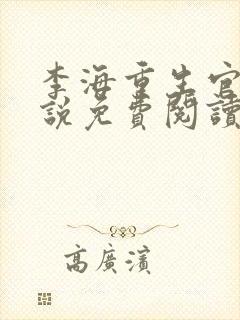 李海重生官
說免費閱讀
高廣濱